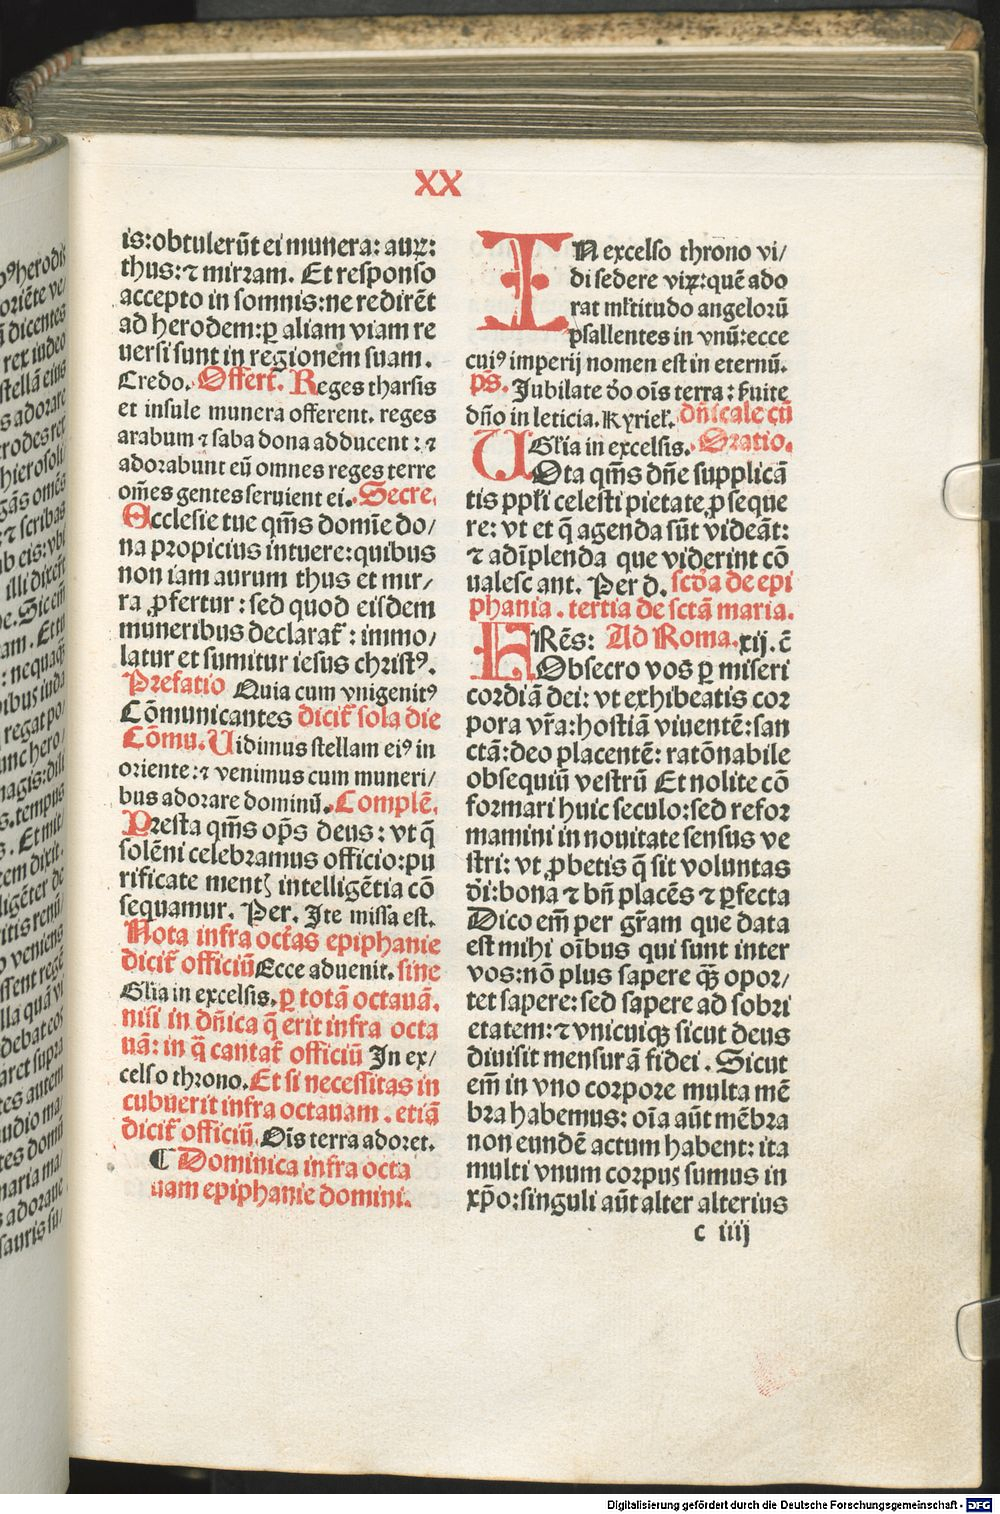 XX
is: obtulerūt ei munera: auꝝ:
thus: ⁊ mirram. Et responso
accepto in somnis: ne redirēt
ad herodem: ꝑ aliam viam re
uersi sunt in regionem suam.
Credo. Offert̄. Reges tharsis
et insule munera offerent. reges
arabum ⁊ saba dona adducent: ⁊
adorabunt eū omnes reges terre
om̄es gentes seruient ei. Secre.
Ecclesie tue qm̄s domīe do/
na propicius intuere: quibus
non iam aurum thus et mir/
ra ꝓfertur: sed quod eisdem
muneribus declarat̄: immo/
latur et sumitur iesus christꝰ.
Prefatio Quia cum vnigenitꝰ
Cōmunicantes dicit̄ sola die
Cōmu. Uidimus stellam eiꝰ in
oriente: ⁊ venimus cum muneri/
bus adorare dominū. Complē.
Presta qm̄s op̄s deus: vt q̄
solēni celebramus officio: pu
rificate mentꝭ intelligētia cō
sequamur. Per. Ite missa est.
Nota infra oct̄as epiphanie
dicit̄ officiū Ecce aduenit. sine
Gl̄ia in excelsis. ꝑ totā octauā.
nisi in dn̄ica q̄ erit infra octa
uā: in q̄ cantat̄ officiū In ex/
celso throno. Et si necessitas in
cubuerit infra octauam. etiā
dicit̄ officiū. Oīs terra adoret.
¶ Dominica infra octa
uam epiphanie domini.
IN excelso throno vi/
di sedere viꝝ: quē ado
rat ml̄titudo angelorū
psallentes in vnū: ecce
cuiꝰ imperij nomen est in eternū.
ps̄. Jubilate ḋo oīs terra: ẜuite
dn̄o in leticia. Kyriel̄. dn̄icale cū
Gl̄ia in excelsis. Oratio.
UOta qm̄s dn̄e supplicā
tis ppl̄i celesti pietate ꝓseque
re: vt et q̄ agenda sūt videāt:
⁊ adīplenda que viderint cō
ualescant. Per d. scḋa de epi
phania. tertia de sctā maria.
FRēs: Ad Roma. xij. c̄
Obsecro vos ꝑ miseri
cordiā dei: vt exhibeatis cor
pora vr̄a: hostiā viuentē: san
ctā: deo placentē: ratōnabile
obsequiū vestrū Et nolite cō
formari huic seculo: sed refor
mamini in nouitate sensus ve
stri: vt ꝓbetis q̄ sit voluntas
ḋi: bona ⁊ bn̄ placēs ⁊ ꝑfecta
Dico em̄ per gr̄am que data
est mihi oībus qui sunt inter
vos: nō plus sapere qꝙ̄ opor/
tet sapere: sed sapere ad sobri
etatem: ⁊ vnicuiqꝫ sicut deus
diuisit mensurā fidei. Sicut
em̄ in vno corpore multa mē
bra habemus: oīa aūt mēbra
non eundē actum habent: ita
multi vnum corpus sumus in
xp̄o: singuli aūt alter alterius
c iiij
Digitalisierung gefördert durch die Deutsche Forschungsgemeinschaft - DFG